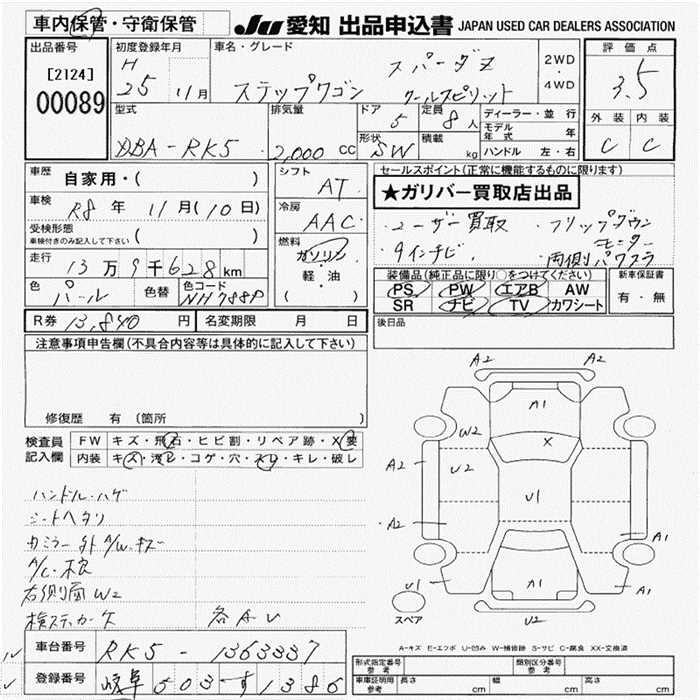 車内保管・守衛保管
JU 愛知 出品申込書 JAPAN USED CAR DEALERS ASSOCIATION
出品番号
[2124]
00089
初度登録年月
H
25 11月
車名・グレード
ステップワゴン スパーダZ
クールスピリット
2WD
・
4WD
評価点
3.5
外装 内装
C C
型式
DBA-RK5
排気量
2,000 CC
ドア
5
定員
8 人
形状
SW
積載
kg
ディーラー・並行
モデル年式 年
ハンドル 左・右
車歴
自家用・( )
車検
R8 年 11月(10日)
受検形態
車検付きのみ記入して下さい ( )
走行
13万9千628km
色
パール
色替
色コード
NH788P
シフト
AT
冷房
AAC
燃料
ガソリン
軽・油
( )
セールスポイント(正常に機能するものに限ります)
★ガリバー買取店出品
・ユーザー買取 ・フリップダウンモニター
・9インチナビ ・両側パワスラ
装備品(純正品に限り○をつけてください)
PS PW エアB AW
SR ナビ TV カワシート
新車保証書
有・無
R券 13,840 円
名変期限 月 日
後日品
注意事項申告欄(不具合内容等は具体的に記入して下さい)
修復歴 有 (箇所 )
検査員記入欄
FW キズ・飛石・ヒビ割・リペア跡・X要
内装 キズ・汚レ・コゲ・穴・スレ・キレ・破レ
ハンドル・ハゲ
シートヘタリ
カミラー外 A/W.キズ
A/C.不良
右側面W2
検ステッカー欠 各A.U
A2 A2
A1
W2
X
A2
U2
U1
A2
A1
U1
A1
A1
U2
スペア
A-キズ E-エクボ U-凹み W-補修跡 S-サビ C-腐食 XX-交換済
車台番号 RK5-1363337
登録番号 岐阜 503 す 1386
形式指定番号
参考
類別区分番号
参考
車庫証明用
参考
長さ cm 幅 cm 高さ cm